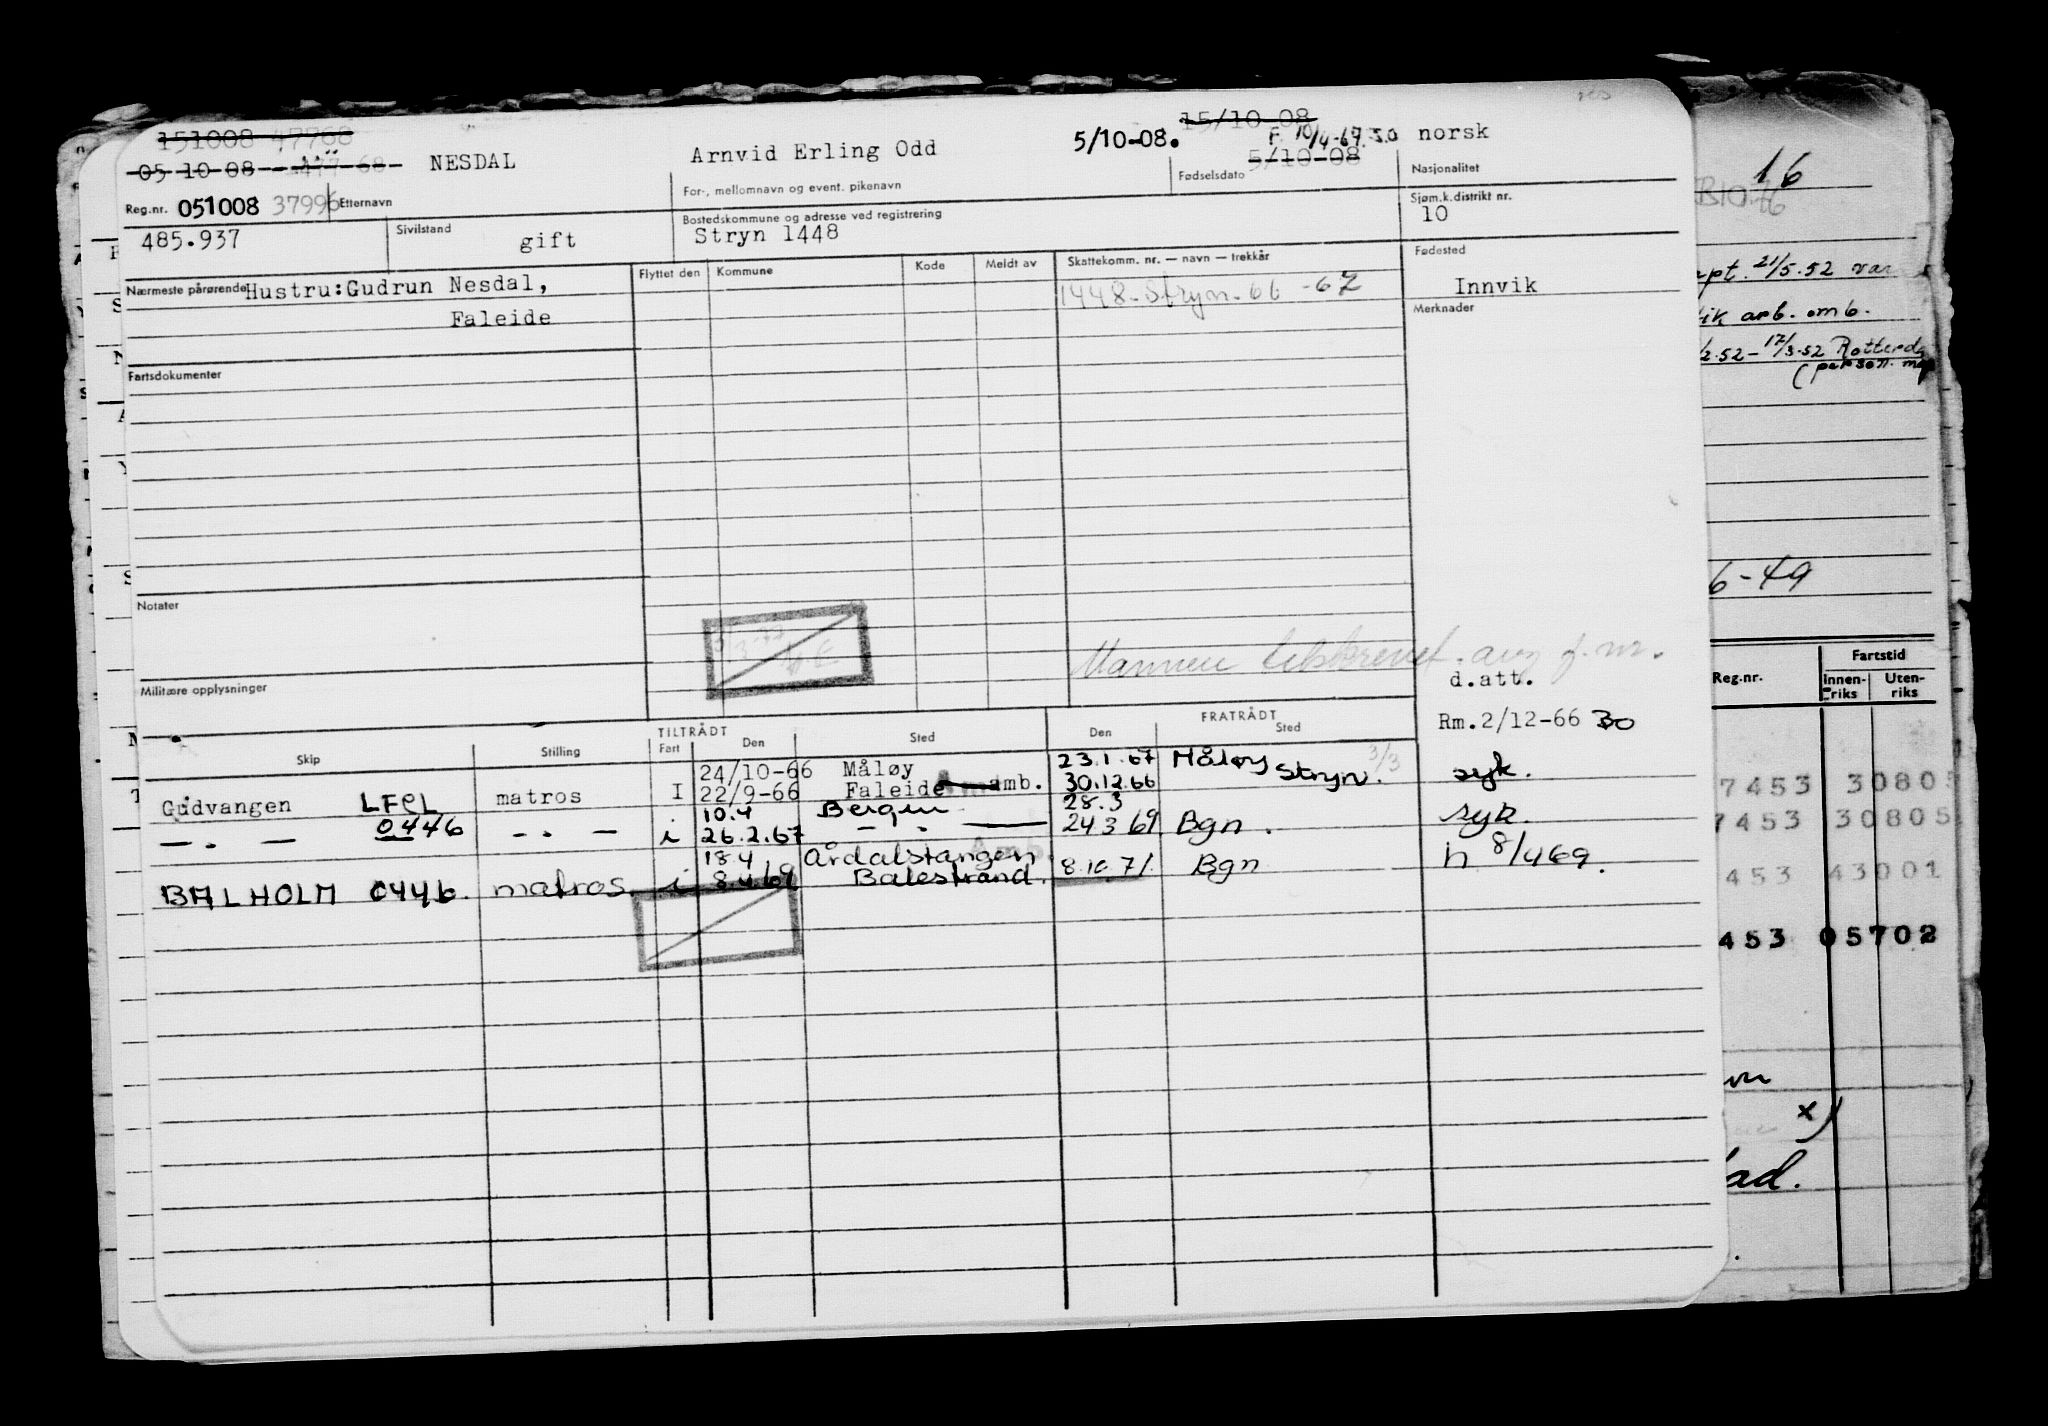 151008 47768
05 10-08 - 477-68 -
NESDAL
Arnvid Erling Odd
5/10-08.
15/10-08
5/10-08
norsk
Reg.nr. 051008 37996
Etternavn
For-, mellomnavn og event. pikenavn
Fødselsdato
Nasjonalitet
485.937
Sivilstand
gift
Bostedskommune og adresse ved registrering
Stryn 1448
Sjøm.k.distrikt nr.
10
Nærmeste pårørende Hustru:Gudrun Nesdal,
Faleide
Flyttet den
Kommune
Kode
Meldt av
Skattekomm. nr. — navn — trekkår
1448-Stryn-66 -67
Fødested
Innvik
Merknader
Fartsdokumenter
Notater
Militære opplysninger
d.att.
Rm.2/12-66 30
TILTRÅDT
FRATRÅDT
Skip
Stilling
Fart
Den
Sted
Den
Sted
24/10-66 Måløy 23.1.67 Måløy 3/3
Gudvangen LFCL matros I 22/9-66 Faleide amb. 30.12.66 Stryn. syk.
10.4 Bergen 28.3
— . — 0446 - . — i 26.2.67 — . — 24 3 69 Bgn. syk.
18.4 Årdalstangen
BALHOLM 0446. matros. i 8.4.69 Balestrand. 8.10.71. Bgn h 8/4 69.
16
21/5.52 var
arb. omb.
2.52 - 17/3.52
6-49
Reg.nr.
Fartstid
Innen-riks
Uten-riks
7453 30805
7453 30805
453 43001
453 05702
x)